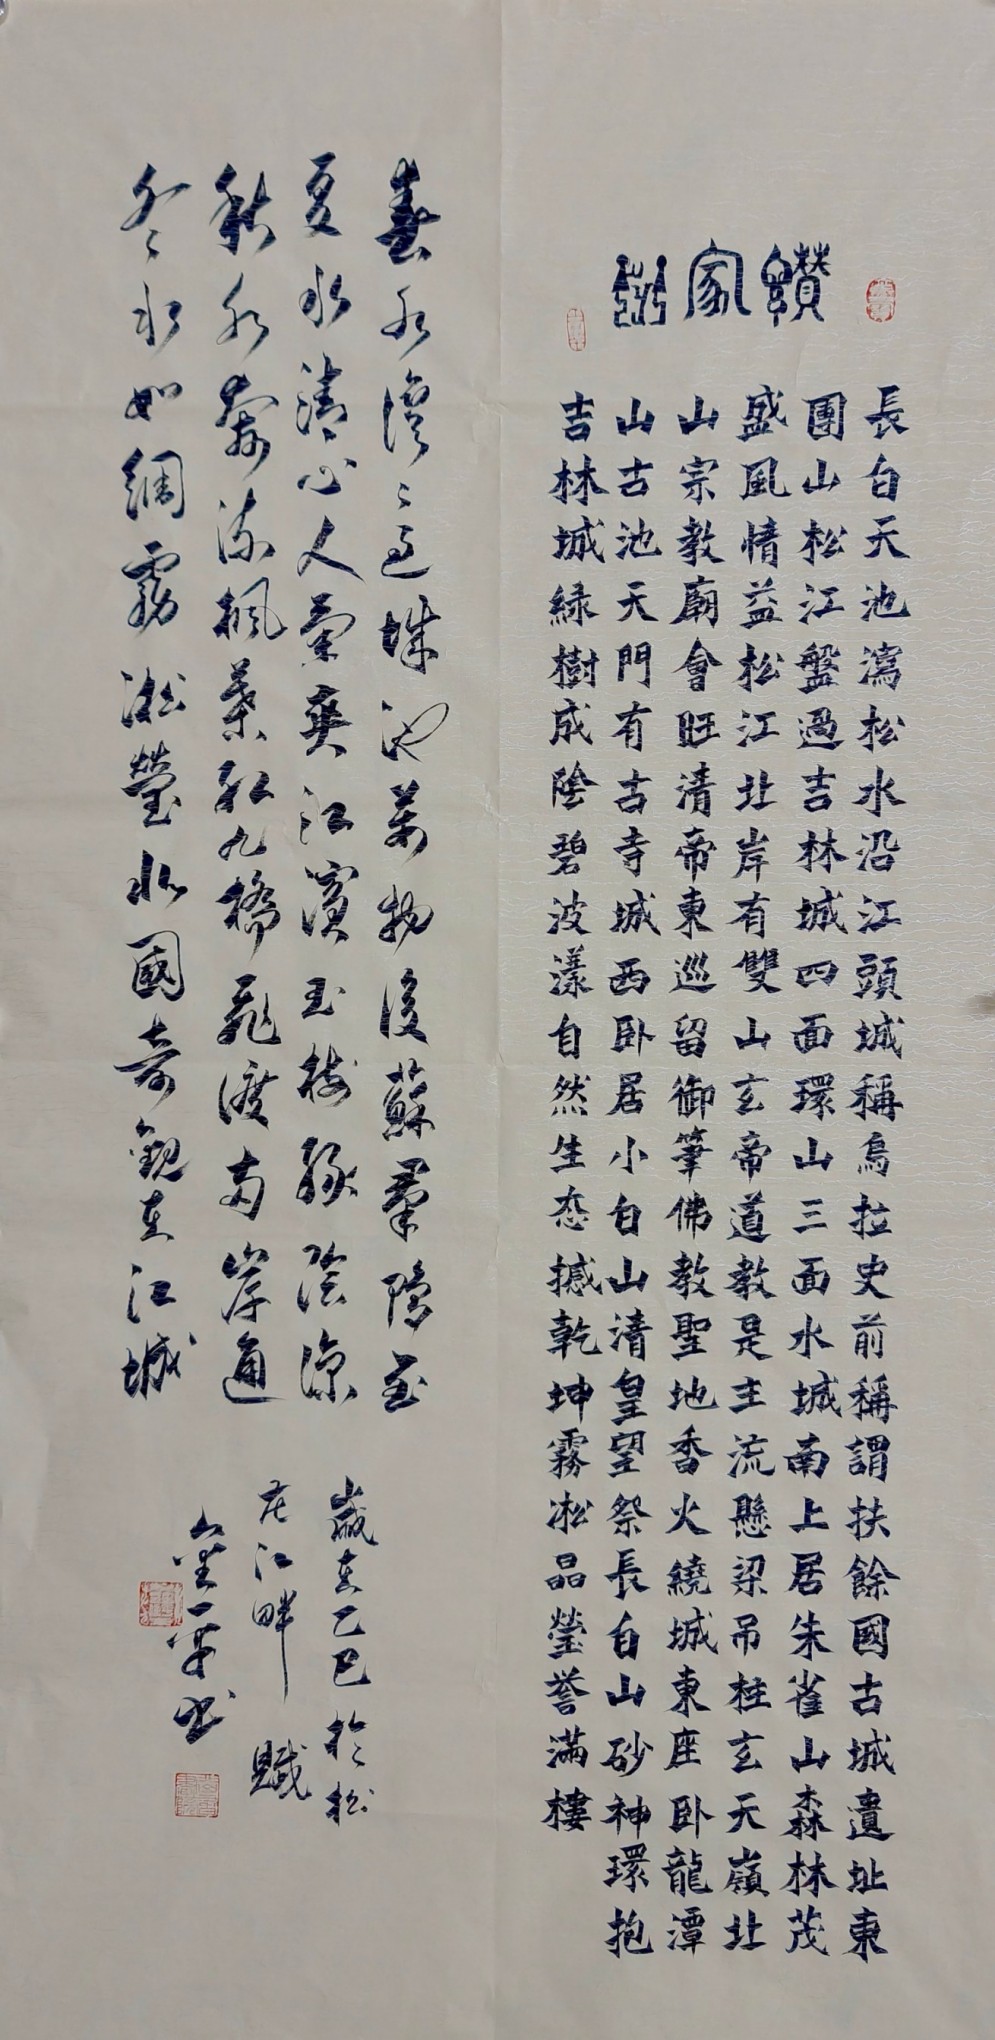 讚家鄉
長白天池瀉松水沿江頭城稱烏拉史前稱謂扶餘國古城遺址東
團山松江盤過吉林城四面環山三面水城南上居朱雀山森林茂
盛風情益松江北岸有雙山玄帝道教是主流懸梁吊柱玄天嶺北
山宗教廟會旺清帝東巡留御筆佛教聖地香火繞城東座卧龍潭
山古池天門有古寺城西卧居小白山清皇望祭長白山砂神環抱
吉林城綠樹成陰碧波漾自然生态撼乾坤霧凇品瑩誉滿樓
春水漫ミ城池萬物復蘇羣隱至
夏水清心人氣爽江濱玉樹綠陰凉
秋水奔流楓葉紅九橋飛渡両岸通
冬水如綢霧淞瑩北國奇觀在江城
歲在乙巳於松
花江畔 賦
金一平书